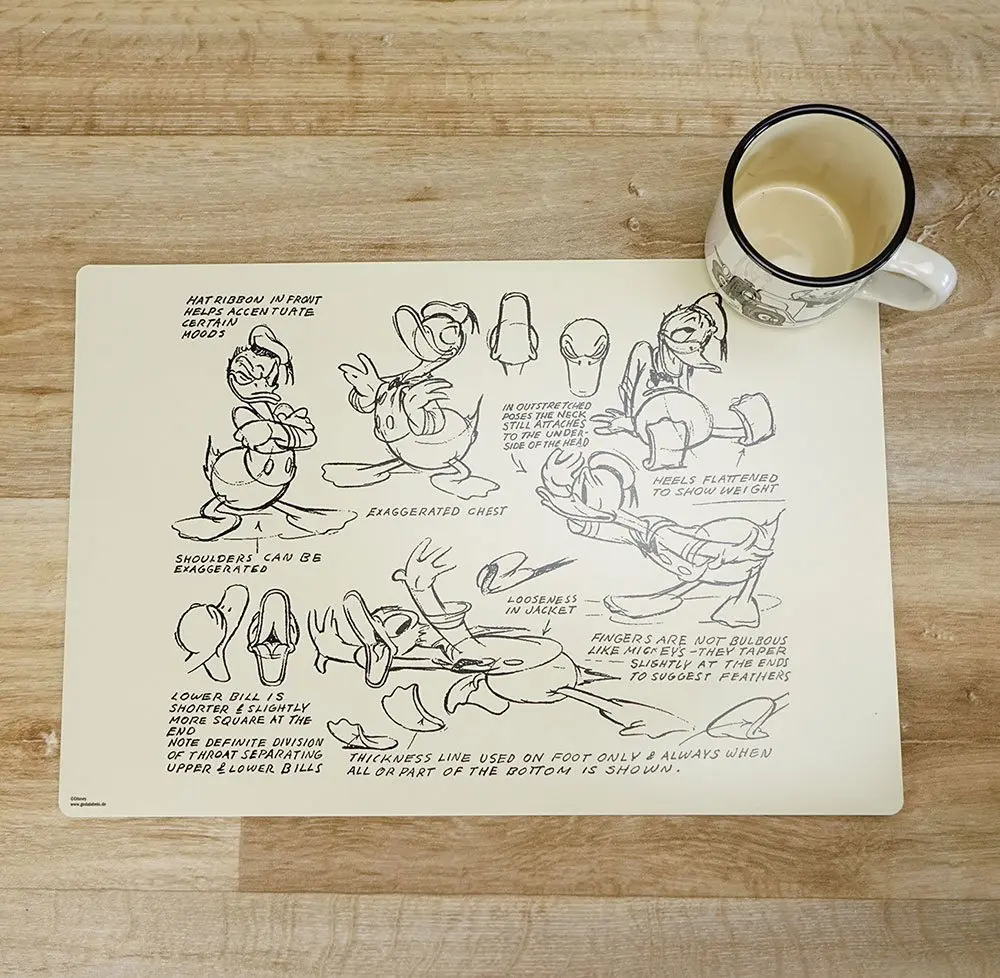 HAT RIBBON IN FRONT
HELPS ACCENTUATE
CERTAIN
MOODS
IN OUTSTRETCHED
POSES THE NECK
STILL ATTACHES
TO THE UNDER-
SIDE OF THE HEAD
HEELS FLATTENED
TO SHOW WEIGHT
EXAGGERATED CHEST
SHOULDERS CAN BE
EXAGGERATED
LOOSENESS
IN JACKET
FINGERS ARE NOT BULBOUS
LIKE MICKEY'S - THEY TAPER
SLIGHTLY AT THE ENDS
TO SUGGEST FEATHERS
LOWER BILL IS
SHORTER & SLIGHTLY
MORE SQUARE AT THE
END
NOTE DEFINITE DIVISION
OF THROAT SEPARATING
UPPER & LOWER BILLS
THICKNESS LINE USED ON FOOT ONLY & ALWAYS WHEN
ALL OR PART OF THE BOTTOM IS SHOWN.
©Disney
www.gedalabels.de